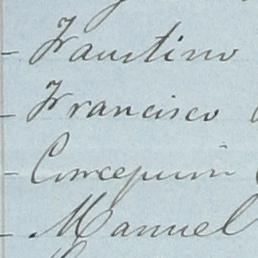 - Faustino
- Francisco
- Concepcion
- Manuel